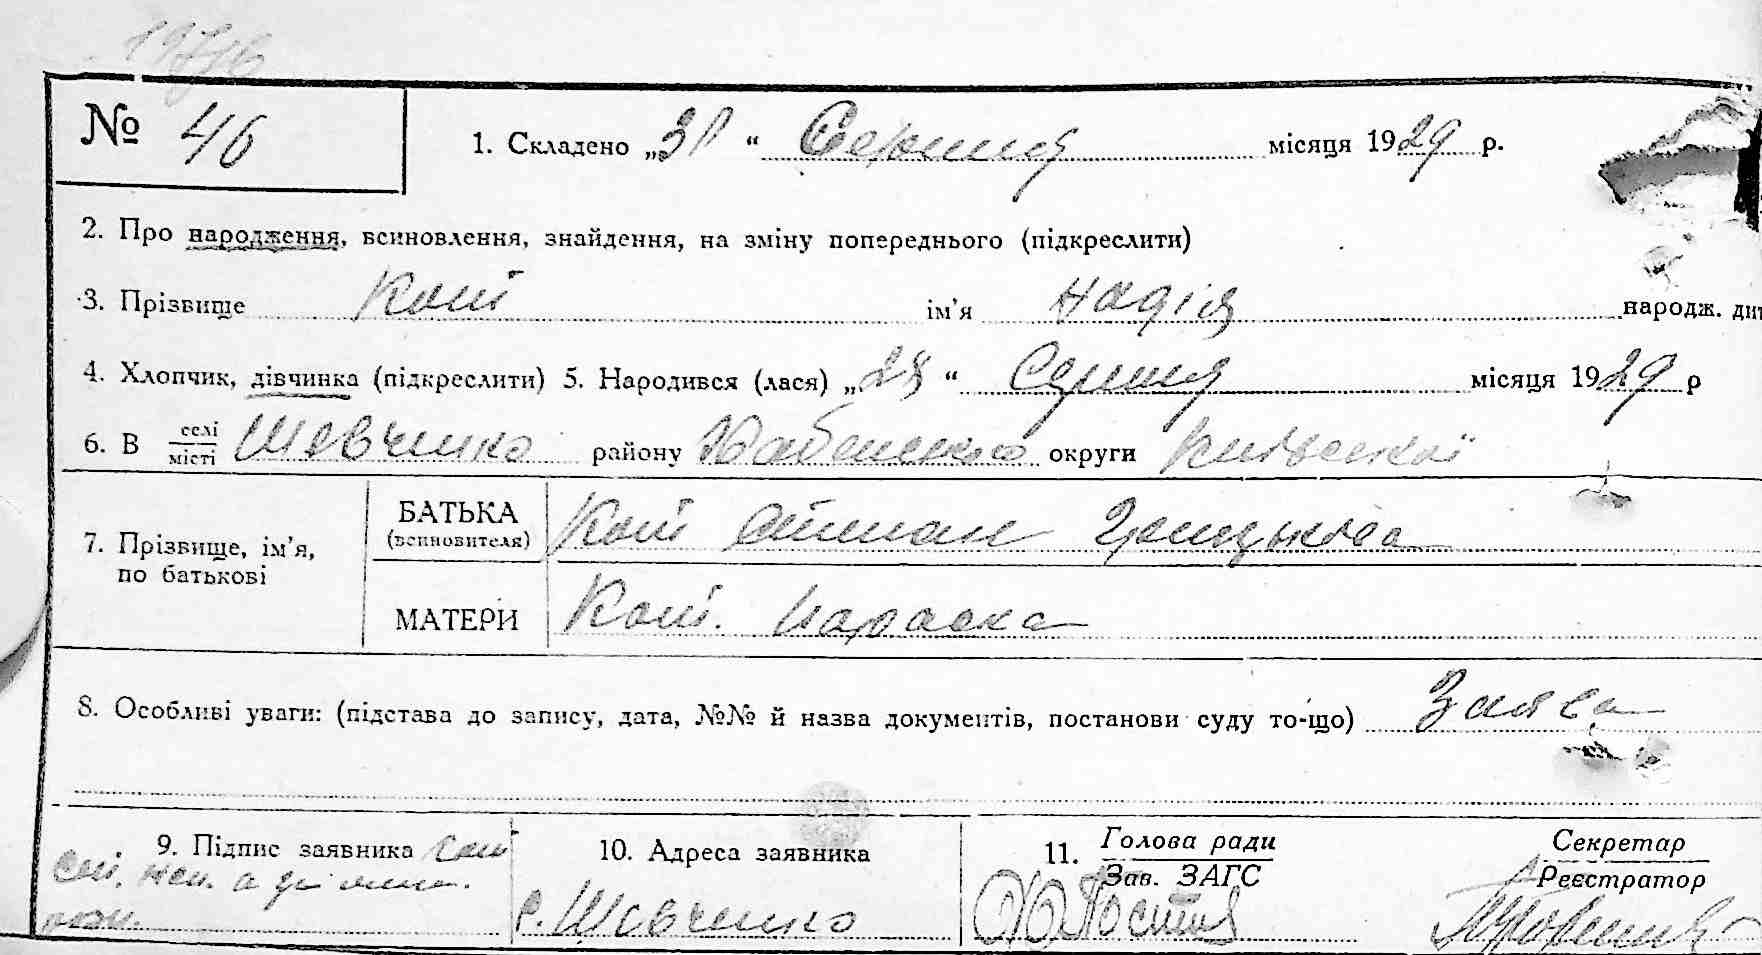 № 46
1. Складено „31“ Серпня місяця 1929 р.
2. Про народження, всиновлення, знайдення, на зміну попереднього (підкреслити)
3. Прізвище Кот ім’я Надія народж. дит
4. Хлопчик, дівчинка (підкреслити) 5. Народився (лася) „28“ Серпня місяця 1929 р
6. В селі місті Шевченко району округи Київської
7. Прізвище, ім’я, по батькові
БАТЬКА (всиновителя) Кот
МАТЕРИ Кот. Параска
8. Особливі уваги: (підстава до запису, дата, №№ й назва документів, постанови суду то-що) Заява
9. Підпис заявника
10. Адреса заявника
с. Шевченко
11. Голова ради
Зав. ЗАГС
Секретар
Реєстратор